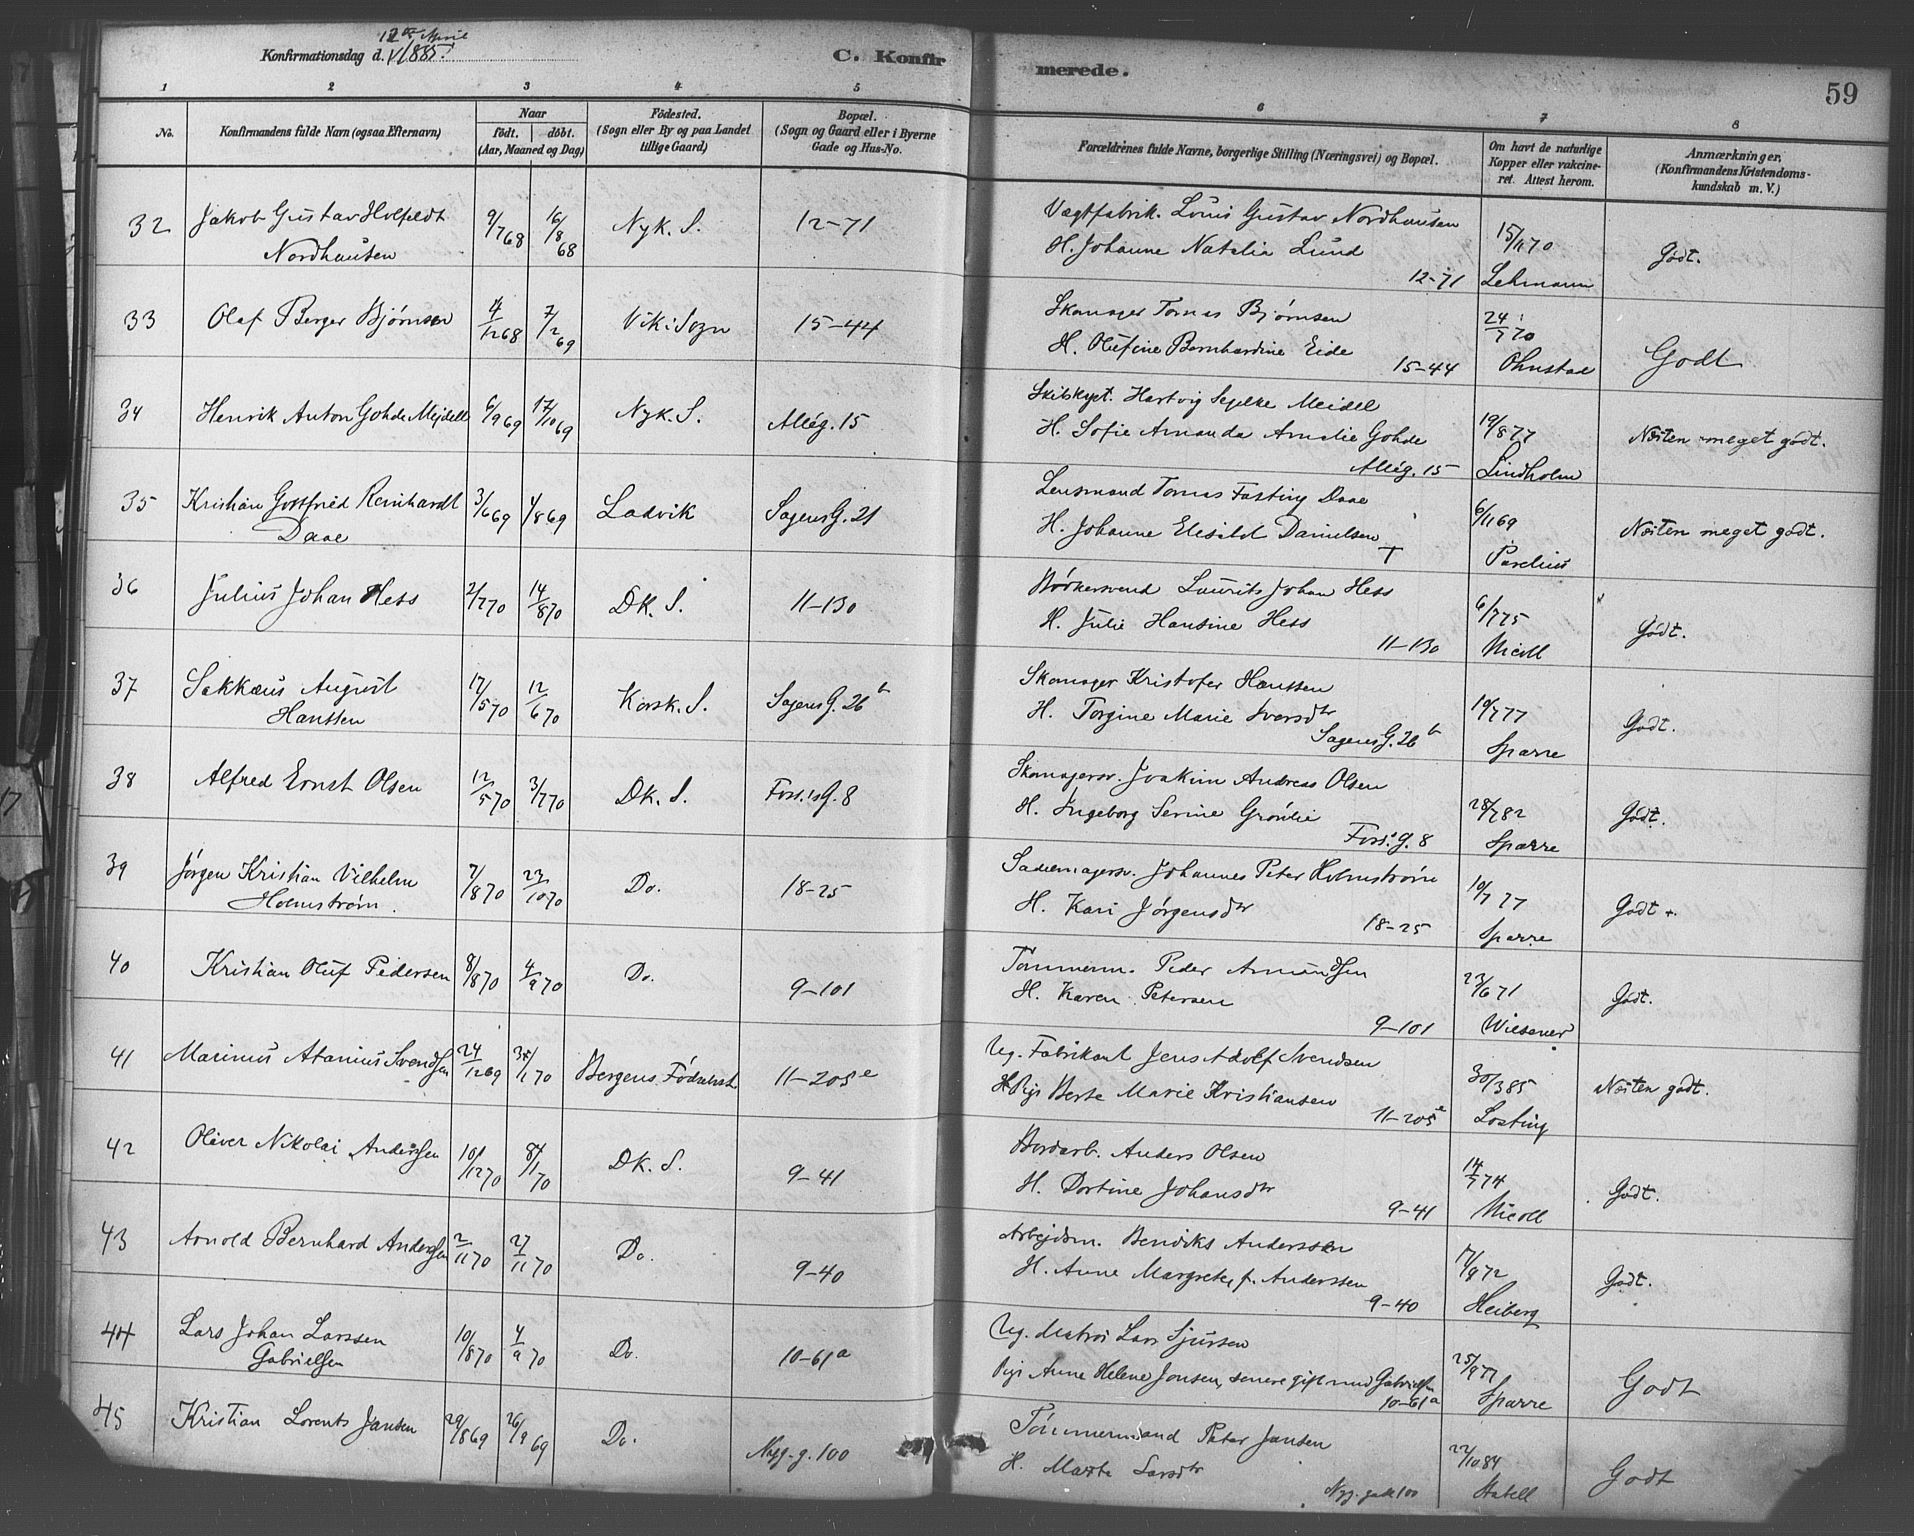 12te April
Konfirmationsdag d. 1885.
C. Konfirmerede.
59
1 2 3 4 5 6 7 8
No.
Konfirmandens fulde Navn (ogsaa Efternavn)
Naar
födt. döbt.
(Aar, Maaned og Dag)
Födested.
(Sogn eller By og paa Landet
tillige Gaard)
Bopæl.
(Sogn og Gaard eller i Byerne
Gade og Hus-No.
Forældrenes fulde Navne, borgerlige Stilling (Næringsvei) og Bopæl.
Om havt de naturlige
Kopper eller vakcine-
ret. Attest herom.
Anmærkninger.
(Konfirmandens Kristendoms-
kundskab m. V.)
32 Jakob Gustav 9/7 68 16/8 68 Nyk. S. 12-71 Vægtfabrik. Louis Gustav Nordhausen 15/11 70 Godt.
Nordhausen H. Johanne Natalia Lund
12-71 Lehmann
33 Olaf Berger Bjørnsen 4/12 68 7/2 69 Vik i Sogn 15-44 Skomager Tomas Bjørnsen 24/7 70 Godt
H. Olufine Bernhardine Eide
15-44 Ohnstad
34 Henrik Anton Gohde Mejdell 6/9 69 17/10 69 Nyk. S. Allég. 15 Hartvig Meidel 19/8 77 Næsten meget godt.
H. Sofie Amanda Amalie Gohde
Allég. 15 Lindholm
35 Kristian Gottfried Reinhardt 3/6 69 1/8 69 Ladvik SagensG. 21 Lensmand Tomas Fasting Daae 6/11 69 Næsten meget godt.
Daae H. Johanne Danielsen
Parelius
36 Julius Johan Hess 2/7 70 14/8 70 DK. S. 11-130 Bødkersvend Laurits Johan Hess 6/7 75 Godt.
H. Julie Hansine Hess
11-130 Nicoll
37 Sakkæus August 17/5 70 12/6 70 Korsk. S. SagensG. 26b Skomager Kristofer Hanssen 19/7 77 Godt.
Hanssen H. Torgine Marie Iversdtr
SagensG. 26b Sparre
38 Alfred Ernst Olsen 12/5 70 3/7 70 DK. S. Foss.'sG. 8 Skomagersv. Joakim Andreas Olsen 28/7 82 Godt.
H. Ingeborg Serine Grønlie
Foss.'s G. 8 Sparre
39 Jørgen Kristian Vilhelm 7/8 70 23/10 70 Do. 18-25 Sadelmagersv. Johannes Peter Holmstrøm 10/7 77 Godt +.
Holmstrøm. H. Kari Jørgensdtr
18-25 Sparre
40 Kristian Oluf Pedersen 8/8 70 4/9 70 Do. 9-101 Tømmerm. Peder Amundsen 23/6 71 Godt.
H. Karen Petersen
9-101 Wiesener
41 Marinus Atanius Svendsen 24/12 69 /1 70 Bergens Fødselsst. 11-205e Ug. Fabrikant Jens Adolf Svendsen 30/3 85 Næsten godt.
Pige Berte Marie Kristiansen
11-205e Losting
42 Oliver Nikolai Anderssen 10/12 70 8/1 70 DK. S. 9-41 Anders Olsen 14/7 74 Godt.
H. Dortine Johansdtr
9-41 Nicoll
43 Arnold Bernhard Anderssen 2/11 70 27/11 70 Do. 9-40 Arbejdsm. Bendiks Anderssen 17/9 72 Godt.
H. Anne Margrete, f. Anderssen
9-40 Heiberg
44 Lars Johan Larssen 10/8 70 4/9 70 Do. 10-61a Ug. Matros Lars Sjursen 25/9 77 Godt
Gabrielsen Pige Anne Helene Jonsen, senere gift med Gabrielsen
10-61a Sparre
45 Kristian Lorents Jansen 29/8 69 26/9 69 Do. Nyg. g. 100 Tømmermand Peter Jansen 22/10 84 Godt
H. Marte Larsdtr
Nyg. gade 100